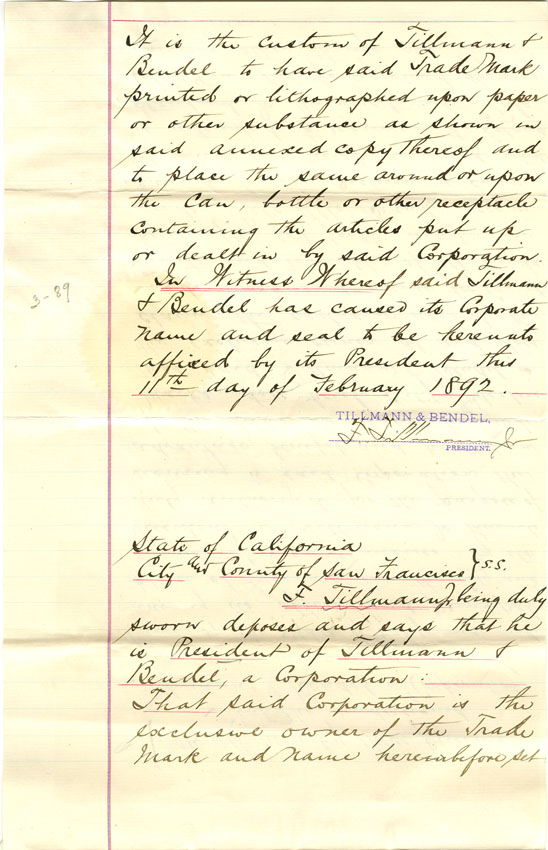 It is the custom of Tillmann &
Bendel to have said Trade Mark
printed or lithographed upon paper
or other substance as shown in
said annexed copy thereof and
to place the same around or upon
the can, bottle or other receptacle
containing the articles put up
or dealt in by said Corporation.
In Witness Whereof said Tillmann
& Bendel has caused its Corporate
name and seal to be hereunto
affixed by its President this
11th day of February 1892.
3-89
TILLMANN & BENDEL,
F. Tillmann Jr
PRESIDENT.
State of California
City and County of San Francisco } S.S.
F. Tillmann Jr being duly
sworn deposes and says that he
is President of Tillmann &
Bendel, a Corporation:
That said Corporation is the
exclusive owner of the Trade
Mark and name hereinbefore set